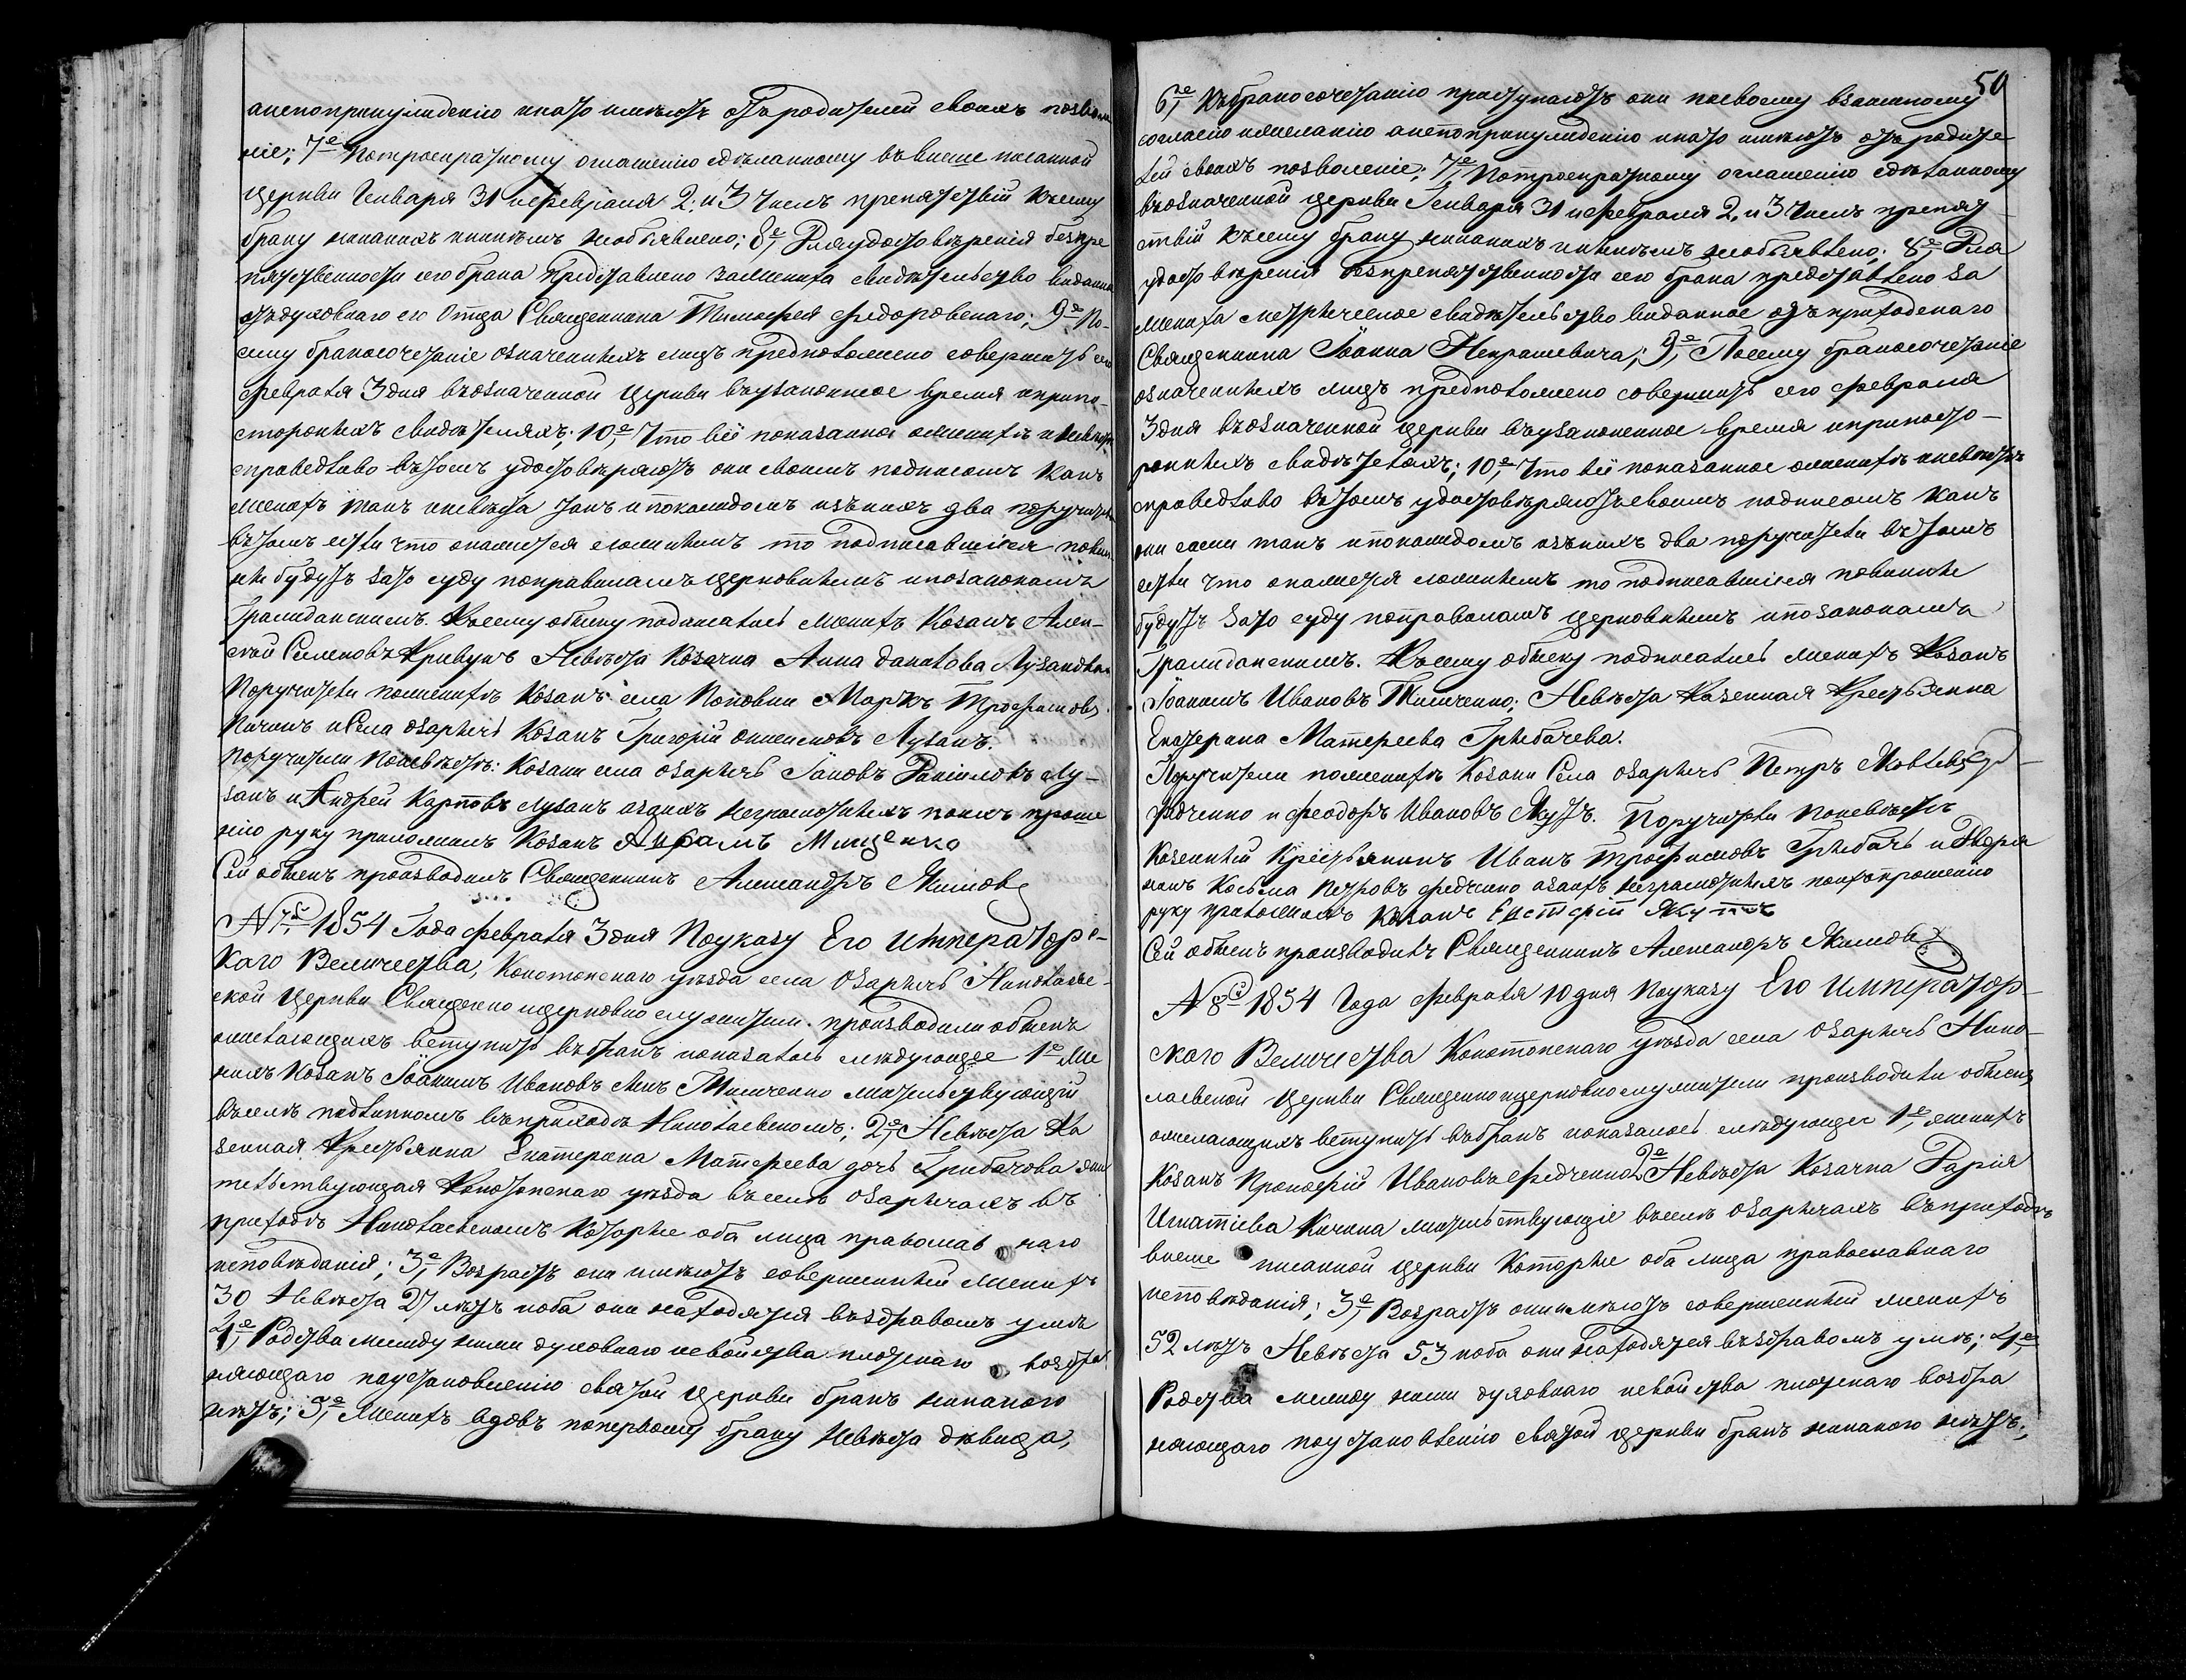 анепопринужденію инато имѣютъ отъ родителей своихъ позволе
ніе; 7е, Потроекратному оглашенію сдѣланному въ вышеписанной
Церкви Генваря 31 и февраля 2, и 3 числъ препятствій къ сему
браку никакихъ никѣмъ необъявлено; 8е, Для удостовѣренія безпре
пятственности сего брака представлено заженихи свидѣтельство виданное
отъ духовнаго его Отца Священника Тимофея Федоровскаго; 9е По-
сему бракосочетаніе означенныхъ лицъ предположено совершить сего
февраля 3 дня въ означенной Церкви въ узаконенное время и при по-
стороннихъ свидѣтеляхъ; 10е, Что всё показанное о женихѣ и невѣстѣ
справедливо въ томъ удостовѣряютъ они своимъ подписомъ какъ
женихъ такъ и невѣста такъ и покаждомъ изъ нихъ два поручителя
въ томъ если что окажется ложнымъ то подписавшіеся повин
ни будутъ зато суду поправиламъ церковнымъ и позаконамъ
Гражданскимъ. К сему обыску подписались женихъ Козакъ Алек-
сѣй Семеновъ Кривунъ Невѣста Козачка Анна Данилова Лузановна
Поручители поженихѣ Козакъ села Поповки Маркъ Трофимовъ
Кичикъ и Села Озаричъ Козакъ Григорій Онисимовъ Лузанъ.
Поручители Поневѣстѣ: Козаки села Озаричъ Іаковъ Даніиловъ Лу-
занъ и Андрей Карповъ Лузанъ азанихъ неграмотнихъ поихъ проше
нію руку приложилъ Козакъ Абрамъ Мищенко
Сей обыскъ производилъ Священникъ Александръ Якимовъ
N 7й, 1854 Года февраля 3 дня Поуказу Его Императорс-
каго Величества, Конотопскаго уѣзда села Озаричъ Николаев-
ской Церкви Священно и церковно служители. производили обыскъ
ожелающихъ вступить въ бракъ и оказалось слѣдующее 1е Же
нихъ Козакъ Іоакимъ Ивановъ синъ Тимченко жительствующій
въ селѣ подлипномъ въ приходѣ Николаевскомъ; 2е, Невѣста Ка
зенная Крестьянка Екатерина Матфеева дочь Грибачова жи
тельствующая Конотопскаго уѣзда въ селѣ Озаричахъ въ
приходѣ Николаевскомъ Которые оба лица православ наго
исповѣданія; 3е, Возрастъ они имѣютъ совершенный Женихъ
30 Невѣста 27 лѣтъ и оба они находятся въ здравомъ умѣ
4е, Родства между ними духовнаго и свойства плотскаго возбра
няющаго по установленію святой Церкви бракъ никакого
нѣтъ; 5е, Женихъ вдовъ поперьвому браку Невѣста дѣвица,
50
6е, Къ бракосочетанію приступаютъ они посвоему взаимному
согласію и желанію анепопринужденію инато имѣютъ отъ родите
лей своихъ позволеніе; 7е, Потроекратному оглашенію сдѣланному
въ означенной церкви Генваря 31 и февраля 2, и 3 числъ препят
ствій къ сему браку никакихъ никѣмъ необъявлено; 8е, Для
удостовѣренія безпрепятственности сего брака представлено за
жениха метрическое свидѣтельство виданное отъ приходскаго
Священника Іоанна Некрашевича; 9е, Посему бракосочетаніе
означенныхъ лицъ предположено совершить сего февраля
3 дня въ означенной церкви въ узаконенное время и при посто-
роннихъ свидѣтеляхъ; 10е, Что всё показанное о женихѣ и невѣстѣ
справедливо въ томъ удостовѣряютъ своимъ подписомъ какъ
они сами такъ и покаждомъ изъ нихъ два поручители въ томъ
если что окажется ложнымъ то подписавшіеся повинны
будутъ зато суду поправиламъ церковнымъ и позаконамъ
Гражданскимъ. К сему обыску подписались женихъ Козакъ
Іоакимъ Ивановъ Тимченко; Невѣста Казенная Крестьянка
Екатерина Матфеева Грибачева.
Поручители поженихѣ Козаки Села Озаричъ Петръ Яковлевъ
Федченко и Феодоръ Ивановъ Якутъ. Поручители Поневѣстѣ
Казенный Крестьянинъ Иванъ Трофимовъ Грибачъ и Дворя
нинъ Косьма Петровъ Федченко азанихъ неграмотнихъ поихъ прошенію
руку приложилъ Козакъ Евстафій Якутъ
Сей обыскъ производилъ Священникъ Александръ Якимовъ
N 8й 1854 Года февраля 10 дня Поуказу Его Император-
скаго Величества Конотопскаго уѣзда села Озаричъ Нико-
лаевской Церкви Священно и церковно служители производили обыскъ
ожелающихъ вступить въ бракъ и оказалось слѣдующее 1е, женихъ
Козакъ Прокофій Ивановъ Федченко 2е Невѣста Козачка Дарія
Игнатіева Кичина жительствующіе въ селѣ Озаричахъ въ приходѣ
више писанной церкви Которые оба лица православнаго
исповѣданія; 3е, Возрастъ они имѣютъ совершенный женихъ
52 лѣтъ Невѣста 53 и оба они находятся въ здравомъ умѣ; 4е,
Родства между ними духовнаго и свойства плотскаго возбра
няющаго по установленію святой церкви бракъ никакого нѣтъ;